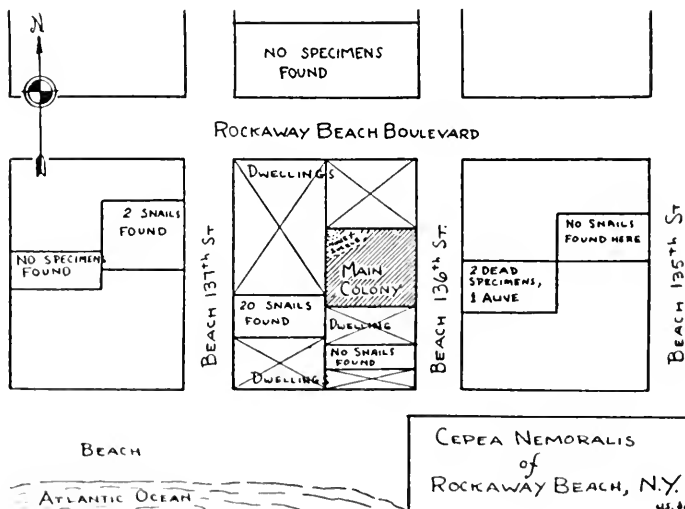 N
NO SPECIMENS
FOUND
ROCKAWAY BEACH BOULEVARD
DWELLINGS
2 SNAILS
FOUND
NO SPECIMENS
FOUND
BEACH 137th ST
MAIN
COLONY
20 SNAILS
FOUND
DWELLING
NO SNAILS
FOUND
DWELLINGS
BEACH 136th ST.
NO SNAILS
FOUND HERE
2 DEAD
SPECIMENS,
1 ALIVE
BEACH 135th ST
BEACH
ATLANTIC OCEAN
CEPEA NEMORALIS
of
ROCKAWAY BEACH, N.Y.